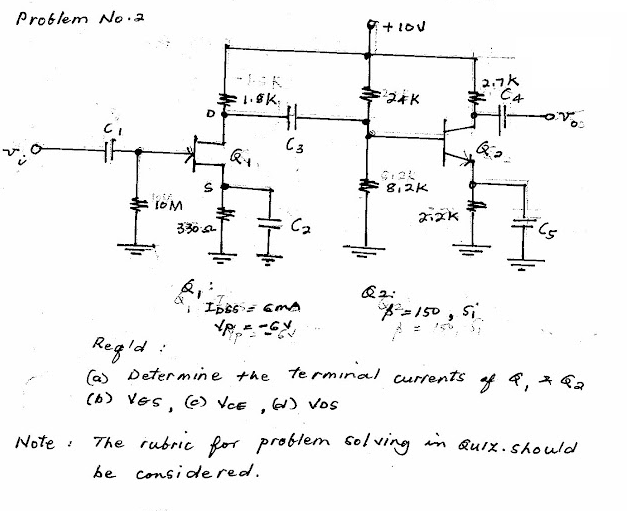 Problem No.2
+10V
1.8K
24K
2.7K
C4
D
C3
Vo
C1
Vi
Q1
Q2
S
8.2K
10M
330Ω
C2
2.2K
C5
Q1: Q2:
IDSS = 6mA β = 150, Si
VP = -6V
Req'd :
(a) Determine the terminal currents of Q1 & Q2
(b) VGS, (c) VCE, (d) VDS
Note : The rubric for problem solving in Quiz. should
be considered.